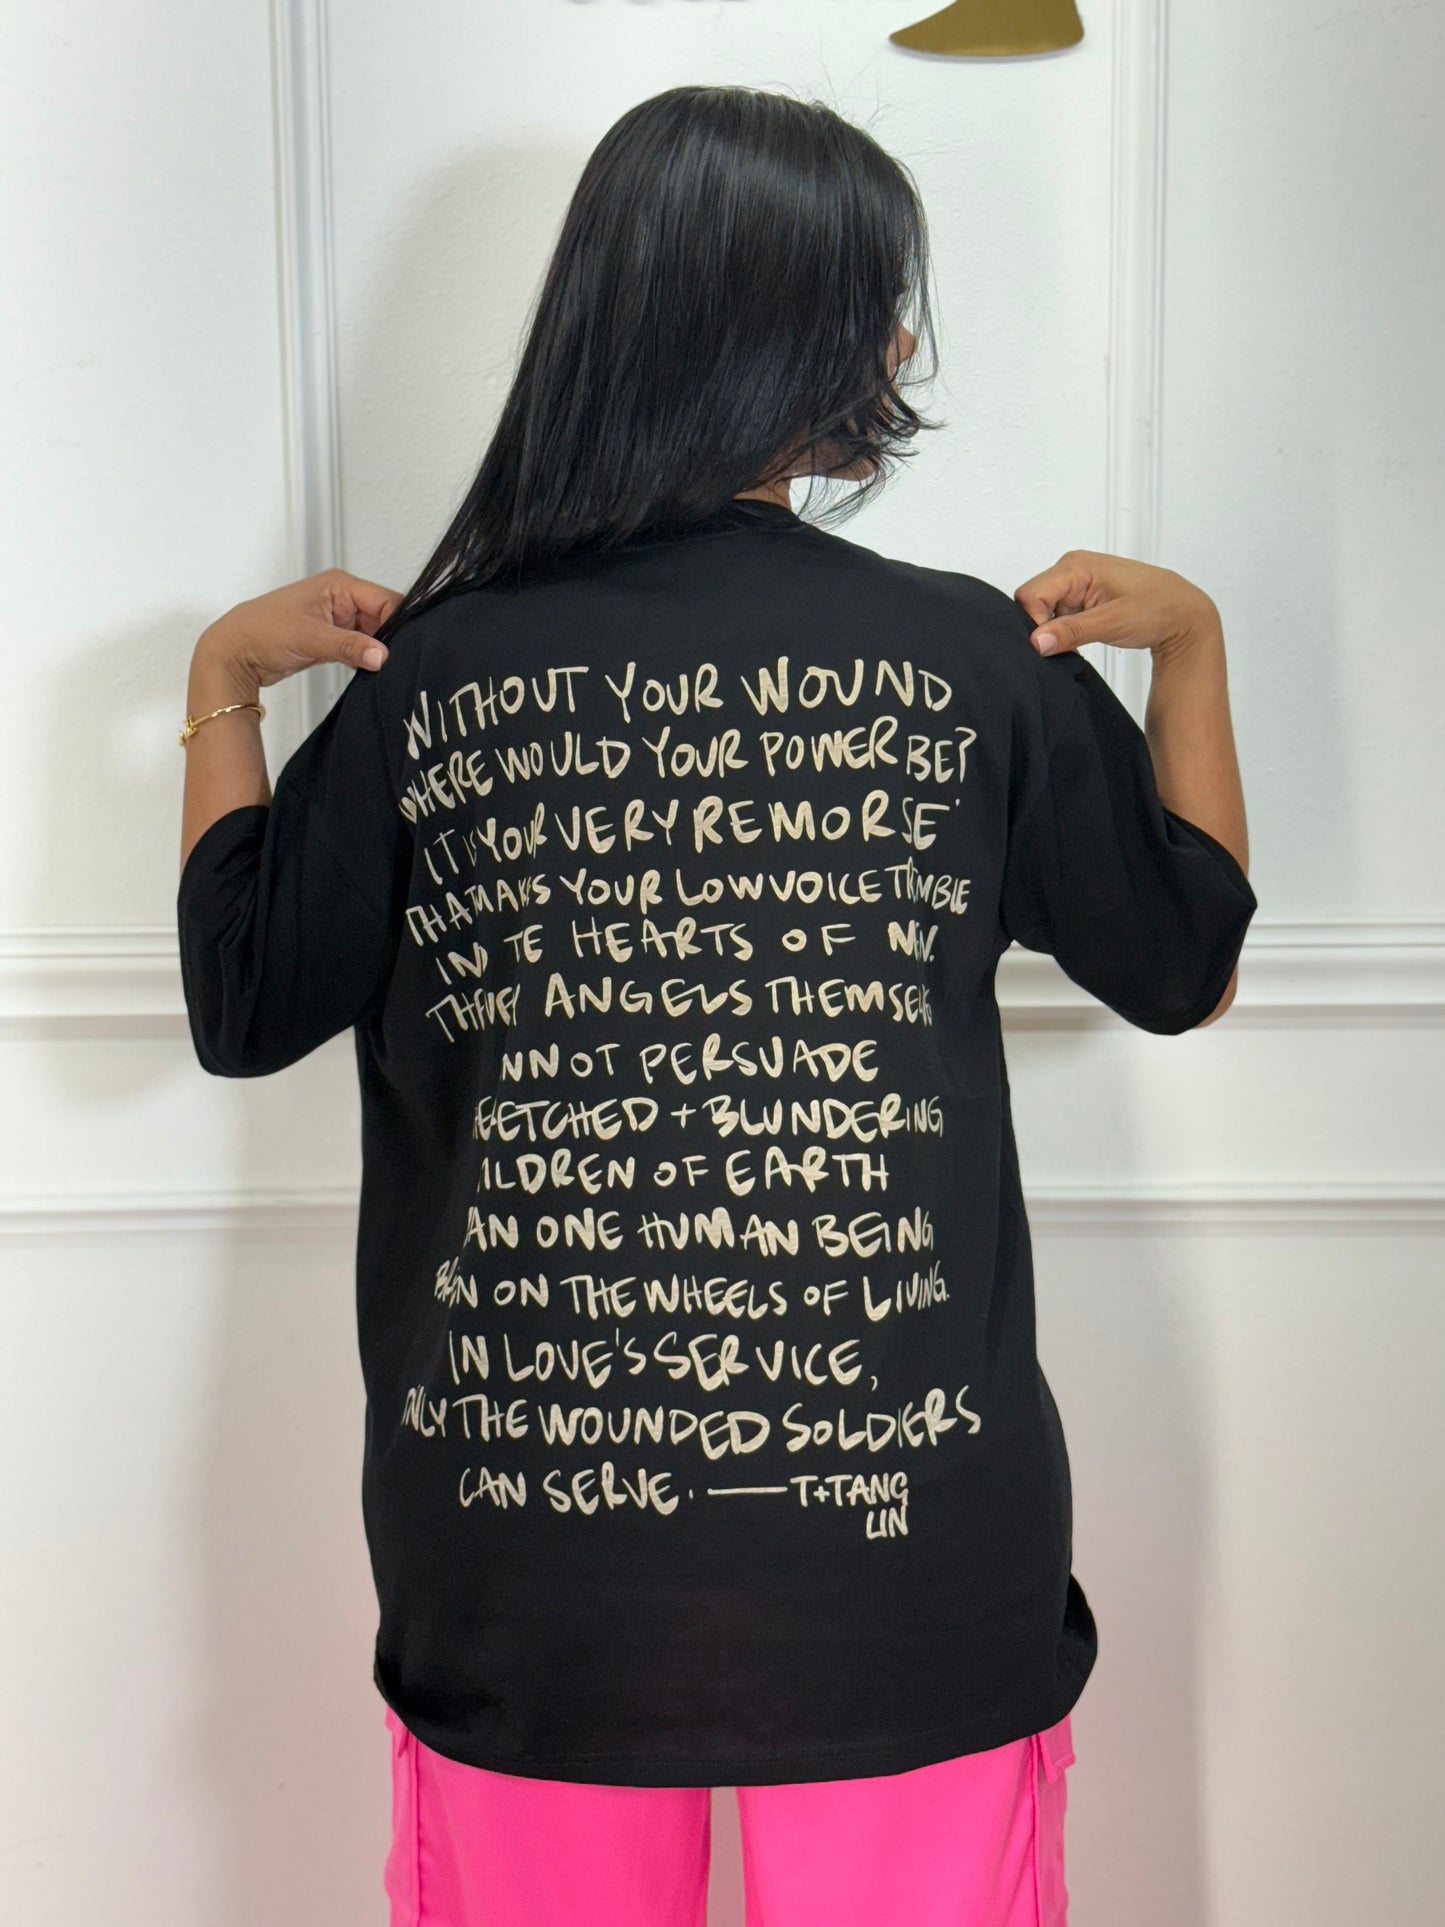 WITHOUT YOUR WOUND
WHERE WOULD YOUR POWER BE?
IT IS YOUR VERY REMORSE
THAT MAKES YOUR LOW VOICE TREMBLE
INTO TE HEARTS OF MEN.
THE VERY ANGELS THEMSELVES
NNOT PERSUADE
ETCHED + BLUNDERING
ILDREN OF EARTH
AN ONE HUMAN BEING
ON THE WHEELS OF LIVING.
IN LOVE'S SERVICE,
ONLY THE WOUNDED SOLDIERS
CAN SERVE. — T+TANG
LIN